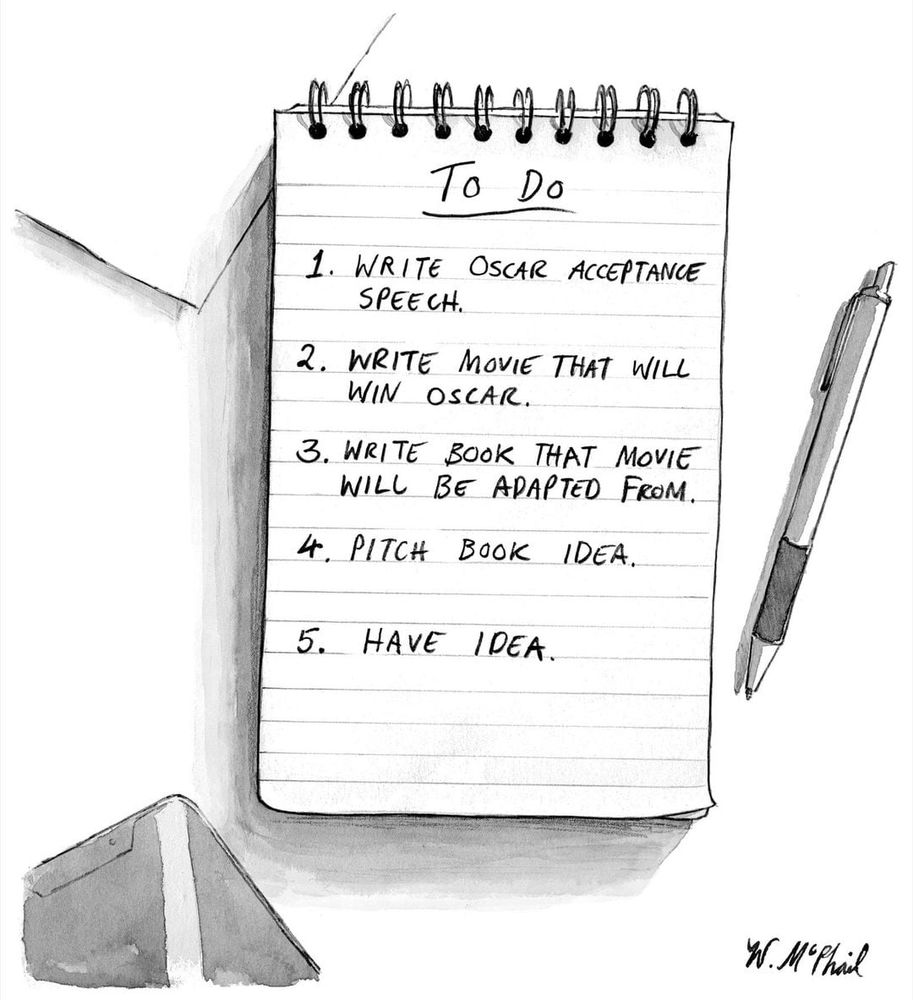 To Do
1. WRITE OSCAR ACCEPTANCE
SPEECH.
2. WRITE MOVIE THAT WILL
WIN OSCAR.
3. WRITE BOOK THAT MOVIE
WILL BE ADAPTED FROM.
4. PITCH BOOK IDEA.
5. HAVE IDEA.
W. McPhail